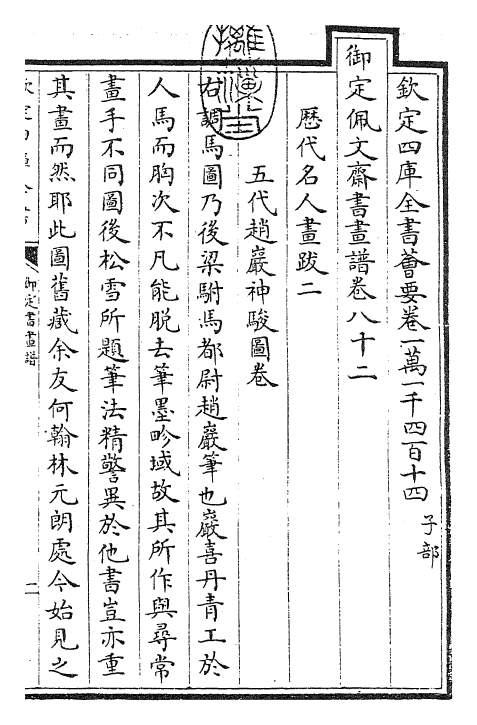 欽定四庫全書薈要卷一萬一千四百十四
子部
御定佩文齋書畫譜卷八十二
歷代名人畫跋二
五代趙巖神駿圖卷
右調馬圖乃後梁駙馬都尉趙巖筆也巖喜丹青工於
人馬而胸次不凡能脫去筆墨畛域故其所作與尋常
畫手不同圖後松雪所題筆法精警異於他書豈亦重
其畫而然耶此圖舊藏余友何翰林元朗處今始見之
御定書畫譜